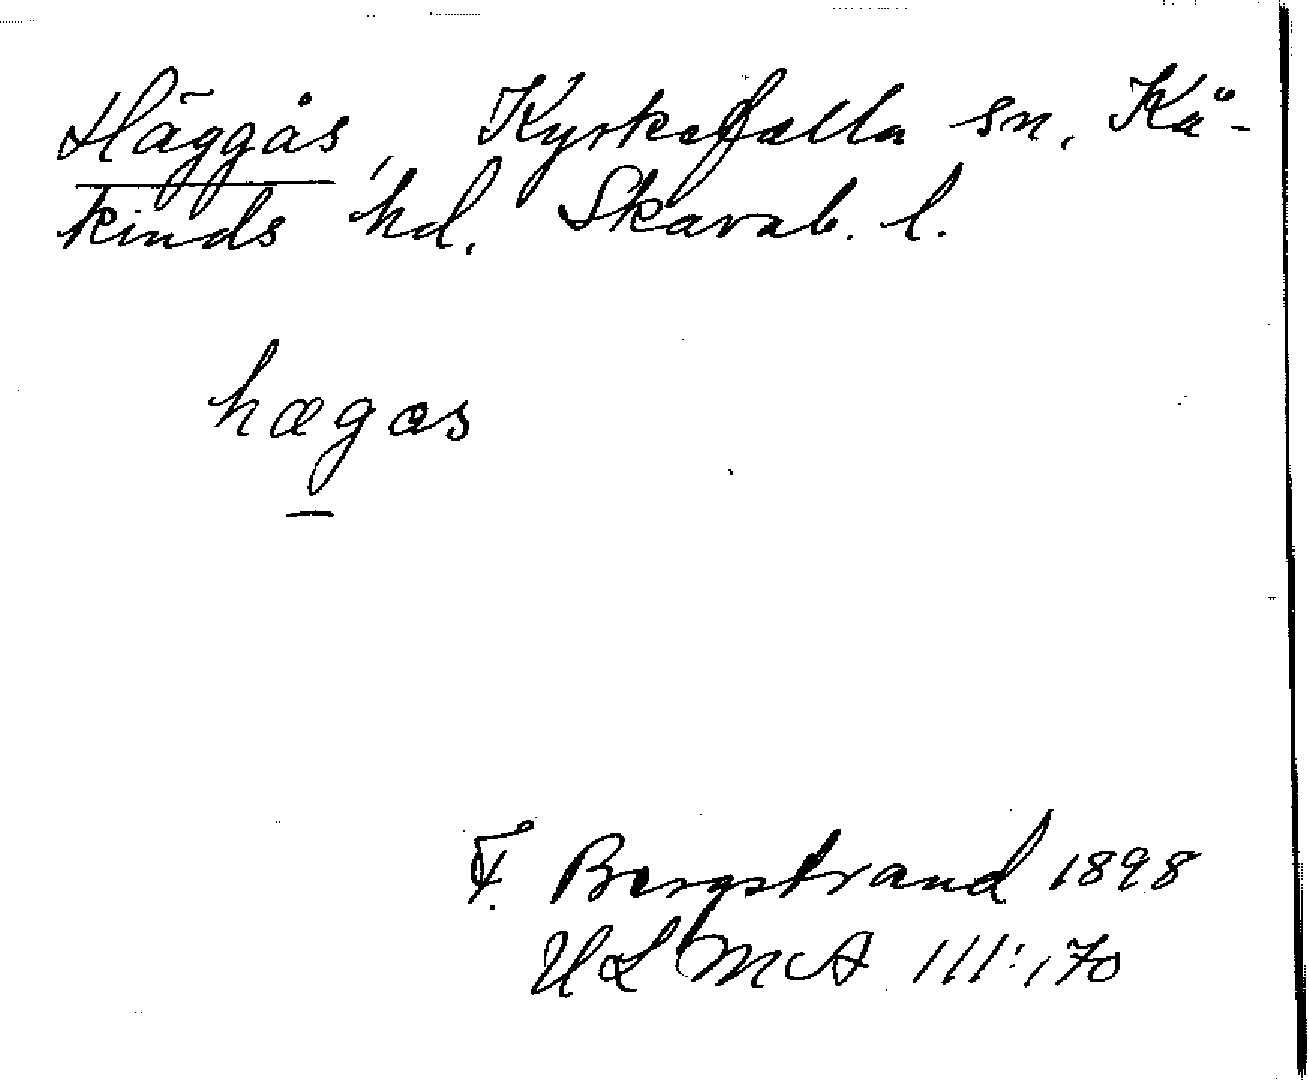 Häggås, Kyrkefalla sn, Kå-
kinds hd. Skarab. l.
hægas
F. Bergstrand 1898
ULMA 111:170